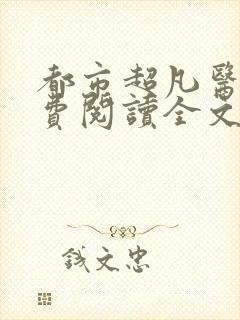 都市超凡醫
費閱讀全文
钱文忠